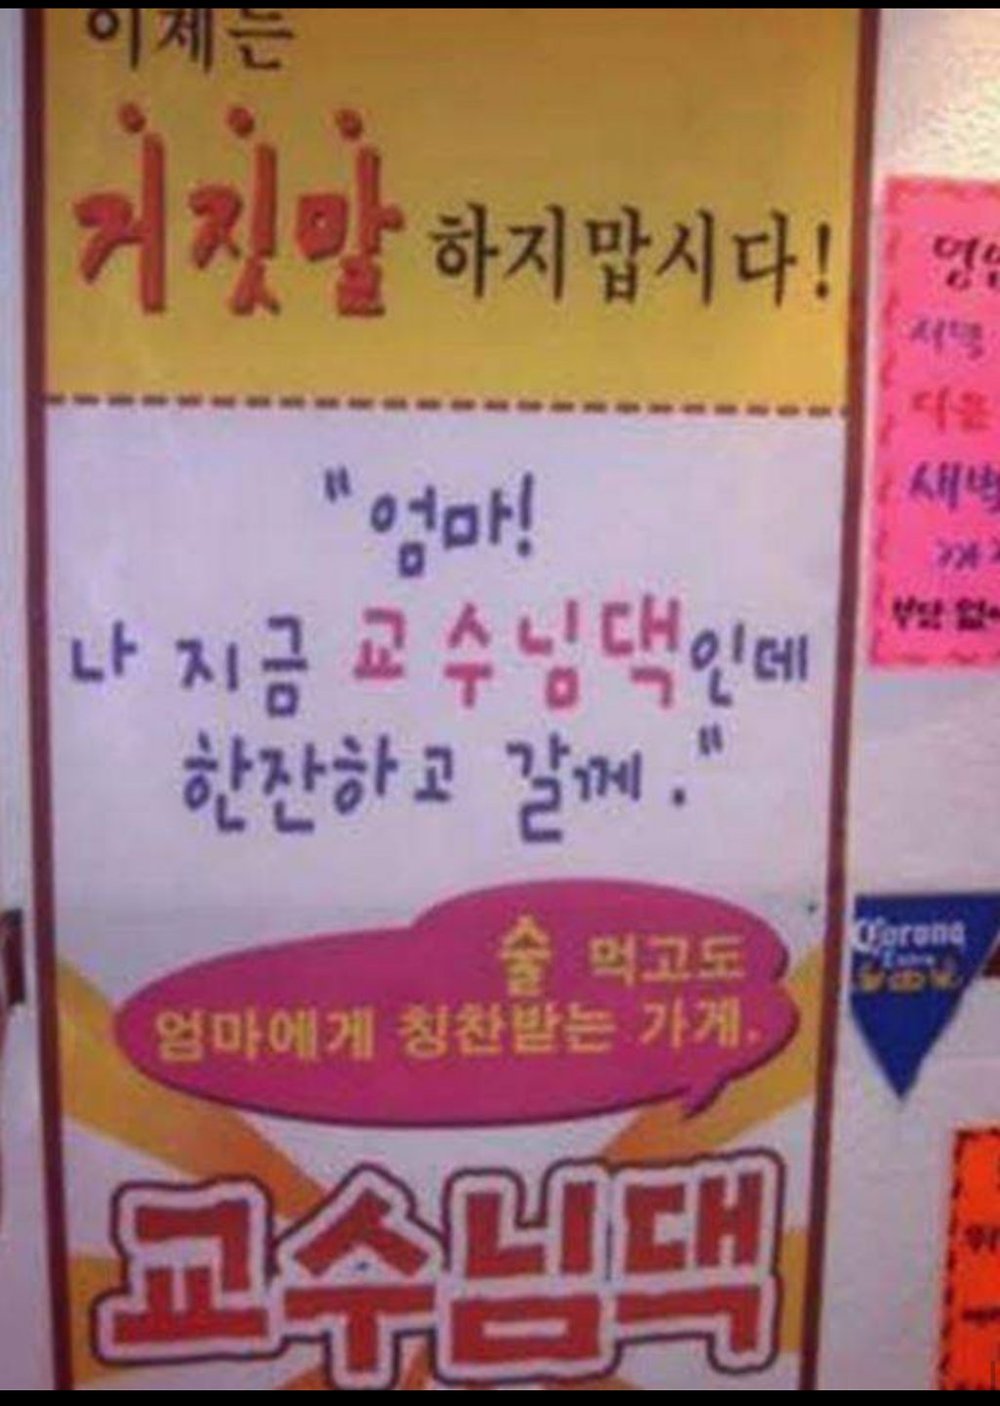 이제는
거짓말 하지맙시다!
"엄마!
나 지금 교수님댁인데
한잔하고 갈께."
술 먹고도
엄마에게 칭찬받는 가게.
교수님댁
Corona
Extra
다음
새벽
부담 없이